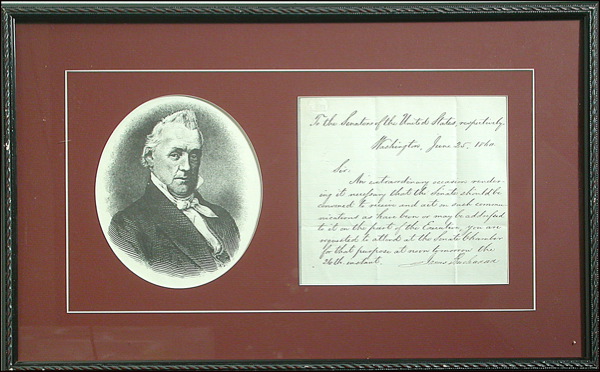 To the Senators of the United States, respectively
Washington, June 25, 1860
Sir.
An extraordinary occasion render-
ing it necessary that the Senate should be
convened to receive and act on such commu-
nications as have been or may be addressed
to it on the part of the Executive, you are
requested to attend at the Senate Chamber
for that purpose at noon tomorrow the
26th instant.
James Buchanan